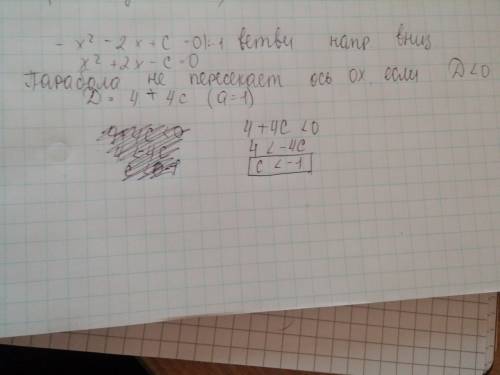 - x² - 2x + c = 0 |:-1 ветви напр вниз
x² + 2x - c = 0
Парабола не пересекает ось ох если D<0
D = 4 + 4c (a=1)
4 + 4c < 0
4 < -4c
c < -1